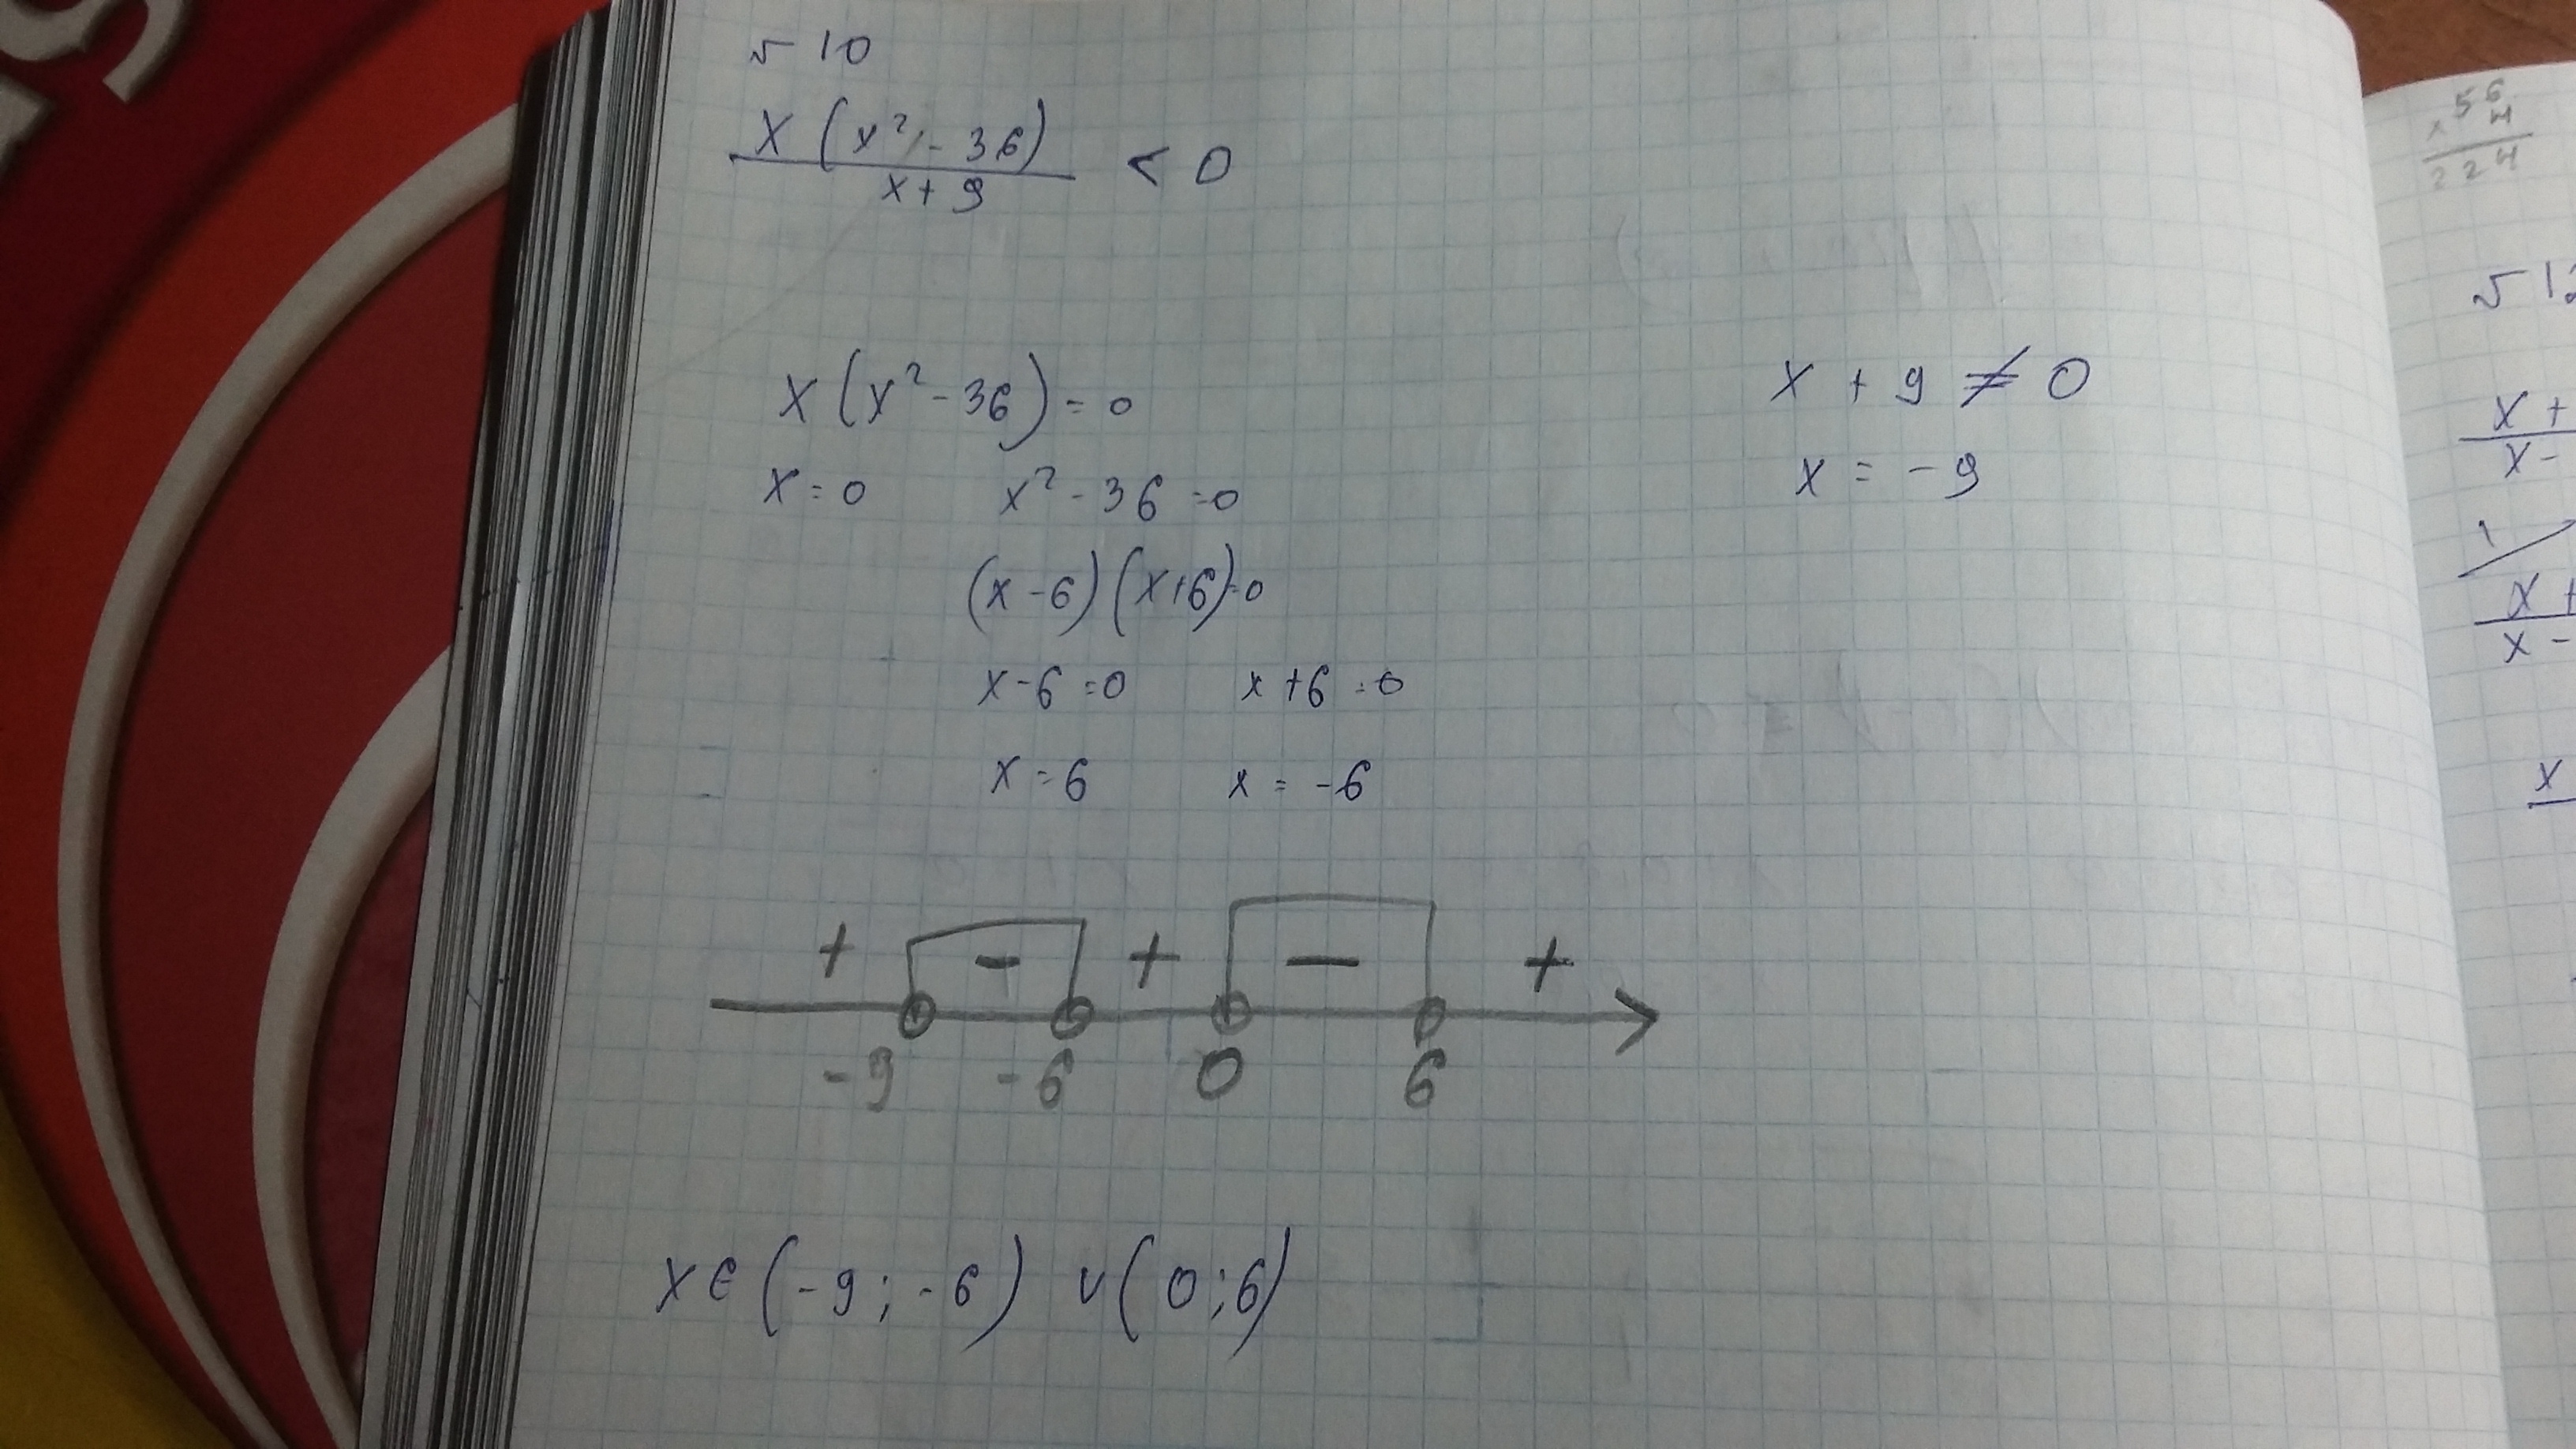 √ 10
x (x² - 36)
x + 9
< 0
x (x² - 36) = 0
x = 0    x² - 36 = 0
(x - 6) (x + 6) = 0
x - 6 = 0    x + 6 = 0
x = 6    x = -6
x + 9 ≠ 0
x = -9
+ - + - +
-9 -6 0 6
x ∈ (-9; -6) ∪ (0; 6)
56
x 4
224
√ 12
x +
x -
1
x +
x -
x